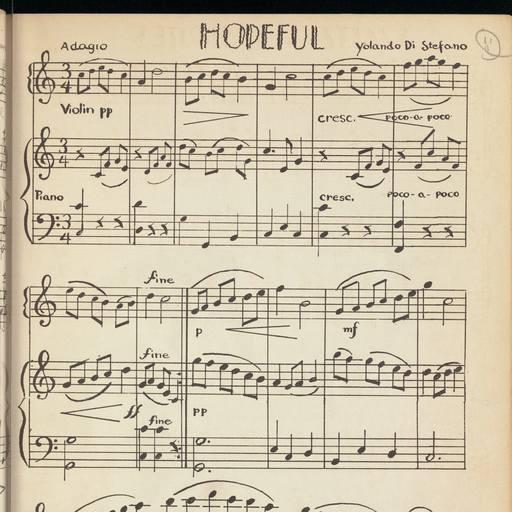 HOPEFUL
Adagio Yolando Di Stefano
3 4
Violin pp cresc. poco-a-poco
3 4
Piano cresc. poco-a-poco
3 4
fine
p mf
fine
ff pp
fine